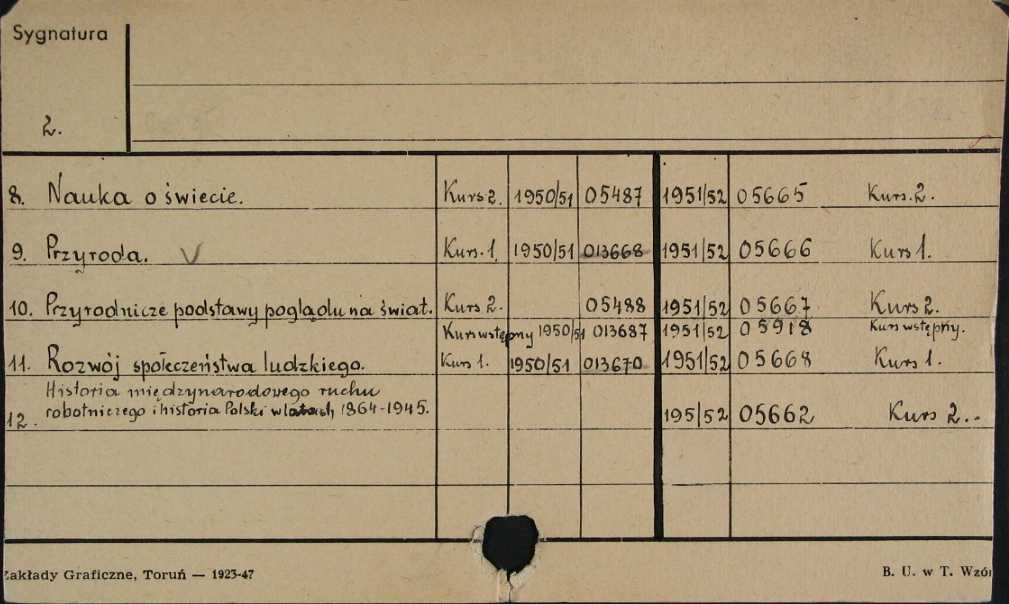 Sygnatura
2.
8. Nauka o świecie. Kurs 2. 1950/51 05487 1951/52 05665 Kurs. 2.
9. Przyroda. V Kurs. 1. 1950/51 013668 1951/52 05666 Kurs 1.
10. Przyrodnicze podstawy poglądu na świat. Kurs 2. 05488 1951/52 05667 Kurs 2.
Kurs wstępny 1950/51 013687 1951/52 05918 Kurs wstępny.
11. Rozwój społeczeństwa ludzkiego. Kurs 1. 1950/51 013670 1951/52 05668 Kurs 1.
Historia międzynarodowego ruchu
12. robotniczego i historia Polski w latach 1864-1945. 195/52 05662 Kurs 2..
Zakłady Graficzne, Toruń — 1923-47 B. U. w T. Wzór